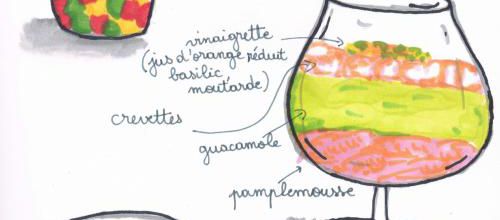 vinaigrette
(jus d'orange réduit
basilic
moutarde)
crevettes
guacamole
pamplemousse